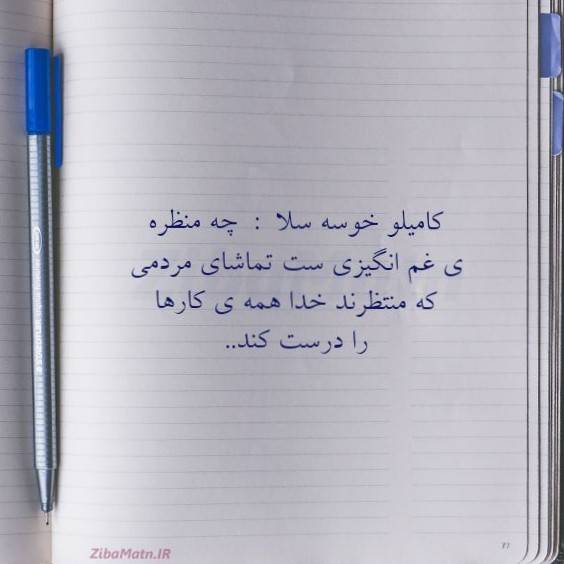 کامیلو خوسه سلا : چه منظره
ی غم انگیزی ست تماشای مردمی
که منتظرند خدا همه ی کارها
را درست کند..
ZibaMatn.IR